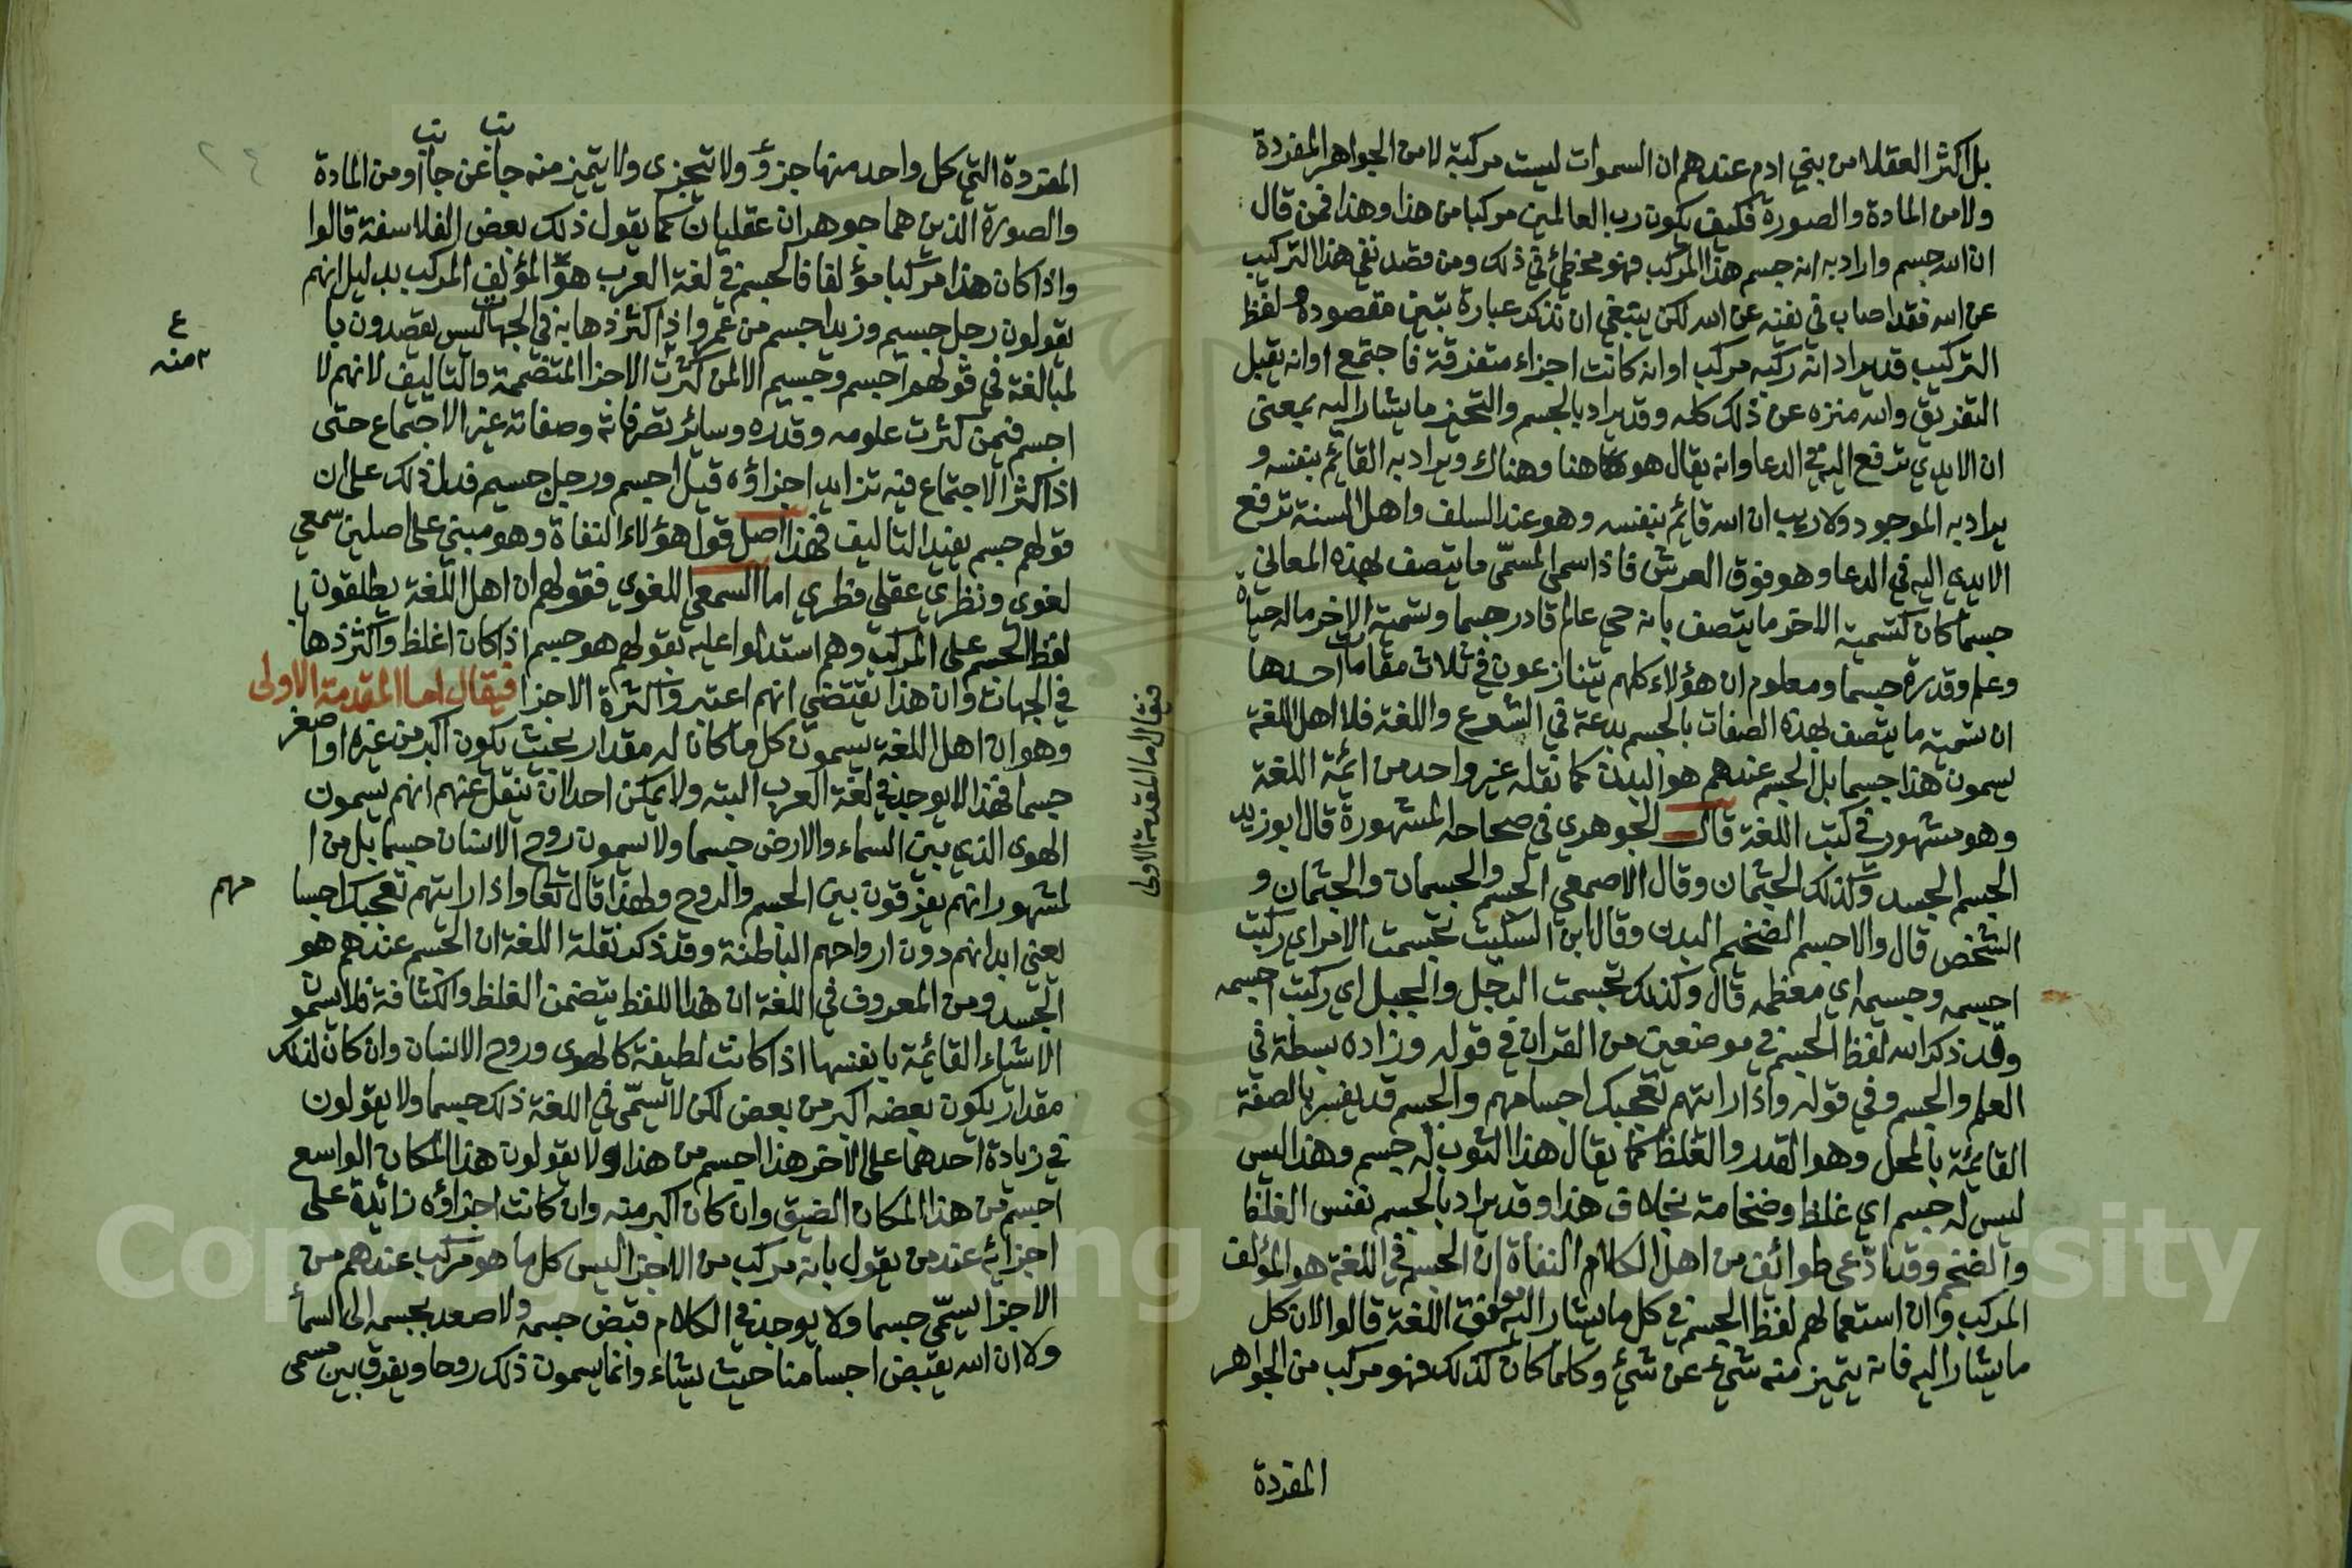 بل اكثر العقلا من بني ادم عندهم ان السموات ليست مركبة لا من الجواهر المفردة
ولا من المادة والصورة فكيف يكون رب العالمين مركبا من هذا وهذا فمن قال
ان الله جسم واراد به انه جسم هذا المركب فهو مخطئ في ذلك ومن قصد نفي هذا التركيب
عن الله فقد اصاب في نفيه عن الله لكن ينبغي ان تذكر عبارة تبين مقصوده لفظ
التركيب قد يراد انه ركبه مركب او انه كانت اجزاء متفرقة فاجتمع او انه يقبل
التفريق والله منزه عن ذلك كله وقد يراد بالجسم والتحيز ما يشار اليه بمعنى
ان الايدي ترفع اليه في الدعا وانه يقال هو هنا وهناك ويراد به القائم بنفسه و
يراد به الموجود ولا ريب ان الله قائم بنفسه وهو عند السلف واهل السنة ترفع
الايدي اليه في الدعا وهو فوق العرش فاذا سمى المسمّى ما يتصف بهذه المعاني
جسما كان كتسمية الاخر ما يتصف بانه حي عالم قادر جسما وتسمية الاخر ماله حياة
وعلم وقدرة جسما ومعلوم ان هؤلاء كلهم يتنازعون في ثلاث مقامات احدها
ان تسمية ما يتصف بهذه الصفات بالجسم بدعة في الشرع واللغة فلا اهل اللغة
يسمون هذا جسما بل الجسم عندهم هو البدن كما نقله غير واحد من ائمة اللغة
وهو مشهور في كتب اللغة قال الجوهري في صحاحه المشهورة قال ابوزيد
الجسم الجسد وكذلك الجثمان وقال الاصمعي الجسم والجسمان والجثمان و
الشخص قال والاجسم الضخيم البدن وقال ابن السكيت تجسمت الامر اي ركبت
اجسمه وجسيمه اي معظمه قال وكذلك تجسمت الرجل والجبل اي ركبت اجسمه
وقد ذكر الله لفظ الجسم في موضعين من القران في قوله وزاده بسطة في
العلم والجسم وفي قوله واذا رايتهم تعجبك اجسامهم والجسم قد يفسر بالصفة
القائمة بالمحل وهو القدر والغلظ كما يقال هذا الثوب له جسم وهذا ليس
ليس له جسم اي غلظ وضخامة بخلاف هذا وقد يراد بالجسم نفس الغلظ
والضخم وقد ادّعى طوائف من اهل الكلام النفاة ان الجسم في اللغة هو المؤلف
المركب وان استعمالهم لفظ الجسم في كل ما يشار اليه موافق اللغة قالوا لان كل
ما يشار اليه فانه يتميز منه شيء عن شيء وكلما كان كذلك فهو مركب من الجواهر
المفردة
فيقال اما المقدمة الاولى
المفردة التي كل واحد منها جزؤ ولا تتجزى ولا يتميز منه جانب عن جانب او من المادة
والصورة الذين هما جوهران عقليان كما يقول ذلك بعض الفلاسفة قالوا
واذا كان هذا مركبا مؤلفا فالجسم في لغة العرب هو المؤلف المركب بدليل انهم
يقولون رجل جسيم وزيد اجسم من عمرو اذا كثر ذهابه في الجهات ليس يقصدون با
لمبالغة في قولهم اجسم وجسيم الا لمن كثرت الاجزا المتضمة والتاليف لانهم لا
٢ منه
اجسم فيمن كثرت علومه وقدره وسائر تصرفاته وصفاته غير الاجتماع حتى
اذا كثر الاجتماع فيه تزايد اجزاؤه قيل اجسم ورجل جسيم فدل ذلك على ان
قولهم جسم يفيد التاليف فهذا اصل قول هؤلاء النفاة وهو مبني على اصلين سمعي
لغوي ونظري عقلي فطري اما السمعي اللغوي فقولهم ان اهل اللغة يطلقون
لفظ الجسم على المركب وهم استدلوا عليه بقولهم هو جسم اذا كان اغلظ واكثر ذهابا
في الجهات وان هذا يقتضي انهم اعتبروا كثرة الاجزا فيقال اما المقدمة الاولى
وهو ان اهل اللغة يسمون كل ما كان له مقدار بحيث يكون اكبر من غيره او اصغر
جسما فهذا لا يوجد في لغة العرب البته ولا يمكن احدا ان ينقل عنهم انهم يسمون
الهوى الذي بين السماء والارض جسما ولا يسمون روح الانسان جسما بل من ا
لمشهور انهم يفرقون بين الجسم والروح ولهذا قال تعا واذا رايتهم تعجبك اجسا
مهم
يعني ابدانهم دون ارواحهم الباطنة وقد ذكر نقلة اللغة ان الجسم عندهم هو
الجسد ومن المعروف في اللغة ان هذا اللفظ يتضمن الغلظ والكثافة فلا يسمون
الاشياء القائمة بانفسها اذا كانت لطيفة كالهوى وروح الانسان وان كان لذلك
مقدار يكون بعضه اكبر من بعض لكن لا تسمّى في اللغة ذلك جسما ولا يقولون
في زيادة احدهما على الاخر هذا اجسم من هذا ولا يقولون هذا المكان الواسع
اجسم من هذا المكان الضيق وان كان اكبر منه وان كانت اجزاؤه زائدة على
اجزائه عند من يقول بانه مركب من الاجزا ليس كل ما هو مركب عندهم من
الاجزا يسمّى جسما ولا يوجد في الكلام قبض جسمه ولا صعد بجسمه الى السماء
ولا ان الله يقبض اجسامنا حيث يشاء وانما يسمون ذلك روحا ويفرق بين مسمى
Copyright © King Saud University